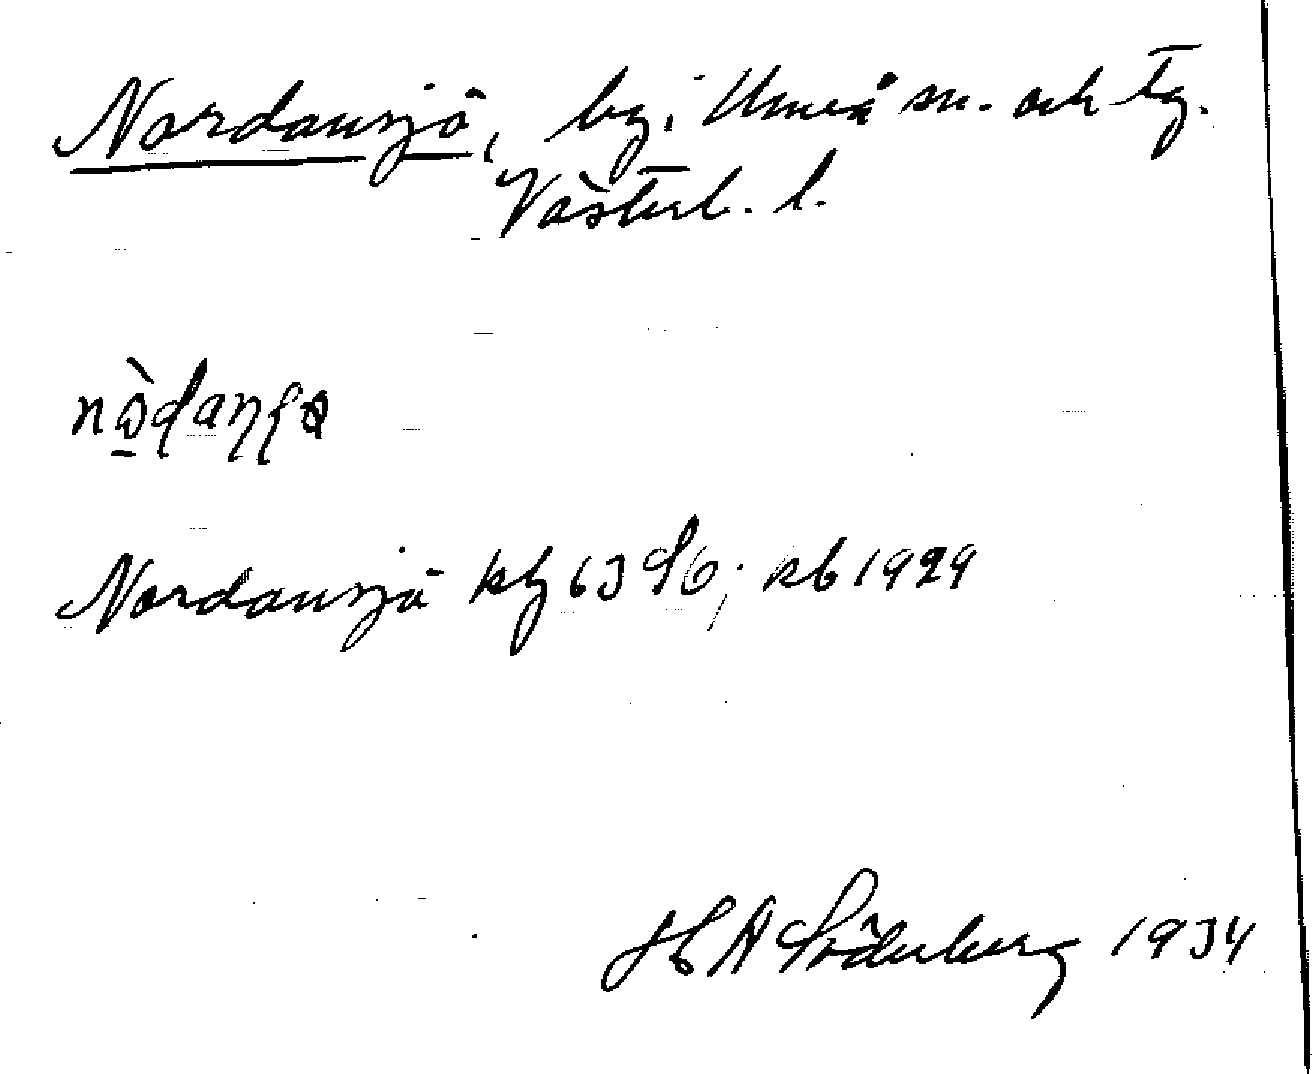 Nordansjö, by i Umeå sn. och tg.
Västerb. l.
Nordansjö kbg 63 S6; kb 1929
H A Söderberg 1934